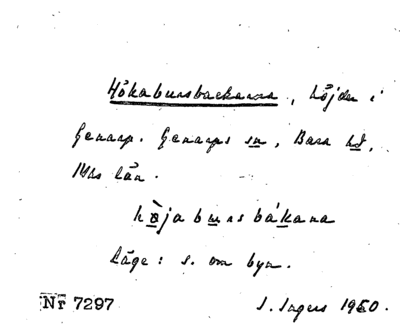 Hökabursbackarna, höjder i
Genarp. Genarps sn, Bara hd,
Mhs län.
hö̀jabursbákana
Läge: s. om byn.
Nr 7297 I. Ingers 1950.